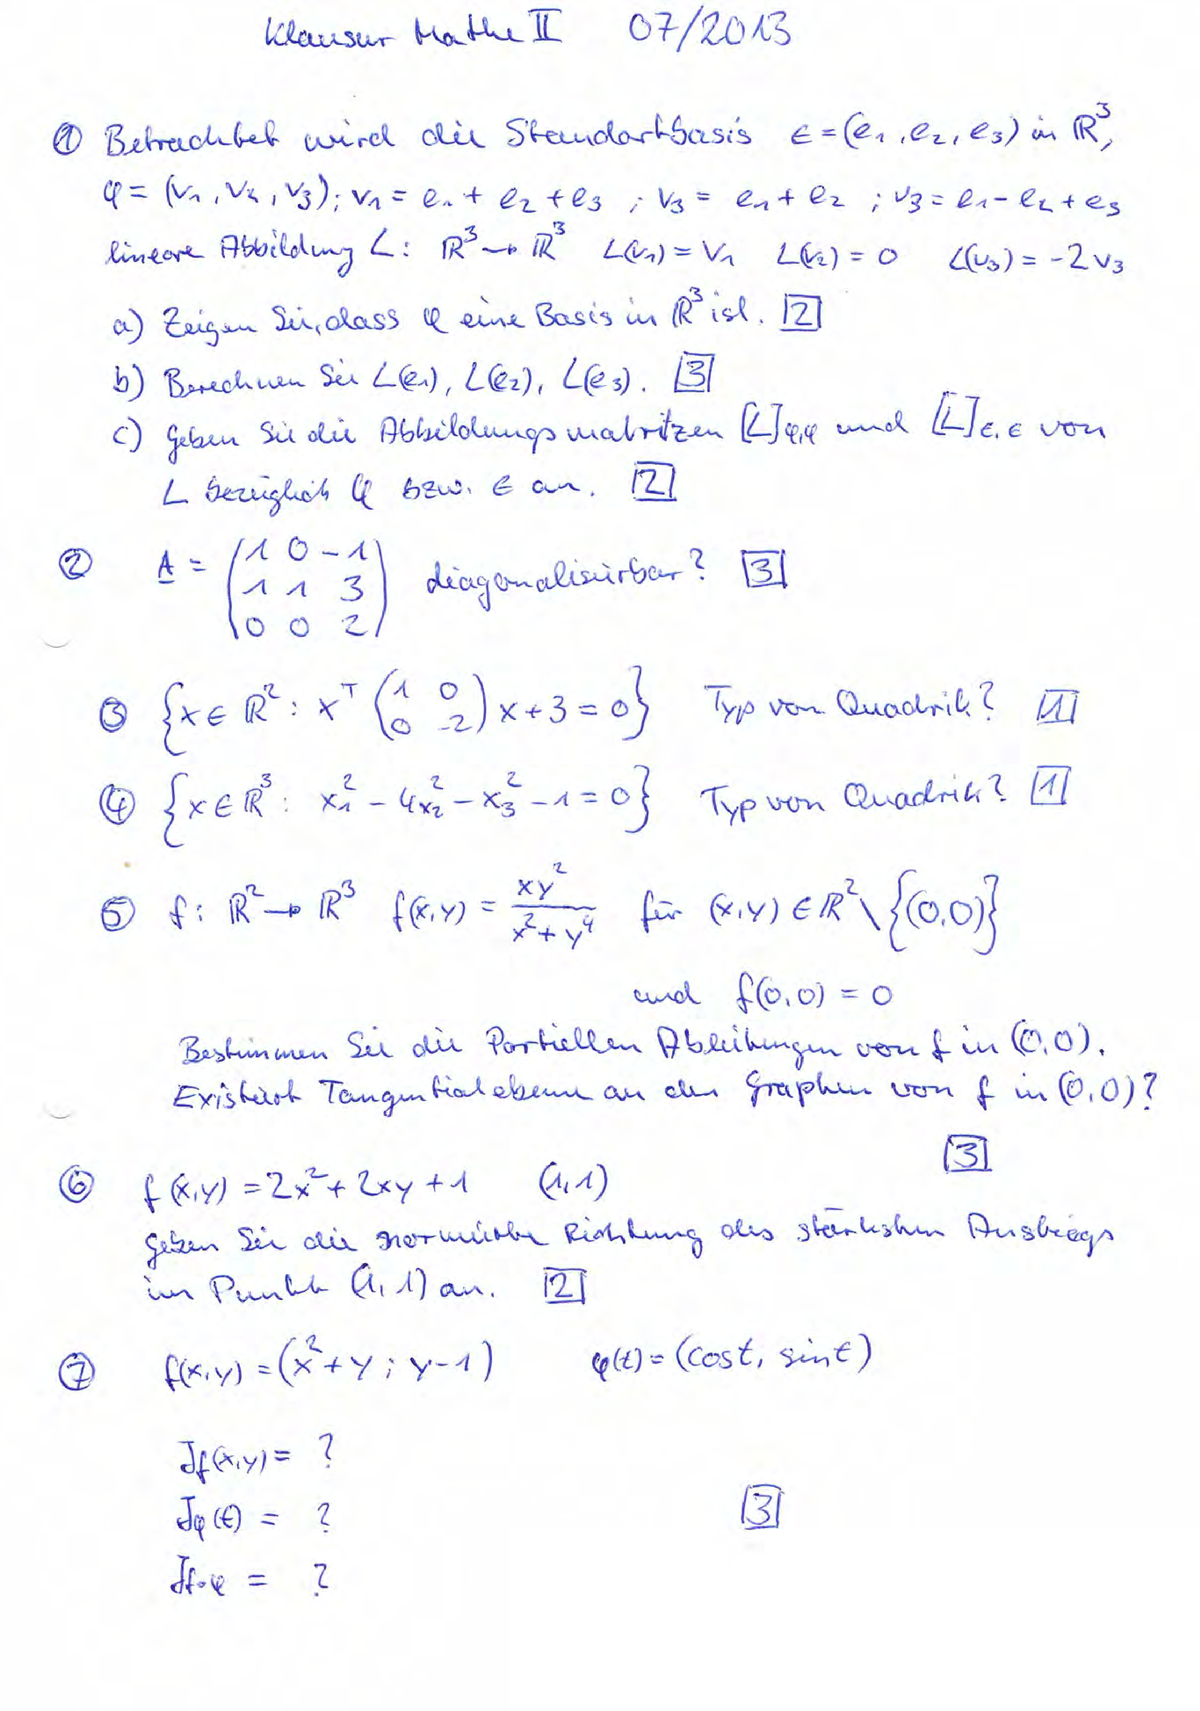 Klausur Mathe II 07/2013
① Betrachtet wird die Standartbasis ϵ = (e₁, e₂, e₃) in ℝ³,
φ = (v₁, v₂, v₃); v₁ = e₁ + e₂ + e₃ ; v₃ = e₁ + e₂ ; v₃ = e₁ - e₂ + e₃
lineare Abbildung L: ℝ³ → ℝ³ L(v₁) = v₁ L(v₂) = 0 L(v₃) = -2v₃
a) Zeigen Sie, dass φ eine Basis in ℝ³ ist. [2]
b) Berechnen Sie L(e₁), L(e₂), L(e₃). [3]
c) Geben Sie die Abbildungsmatritzen [L]φ,φ und [L]ϵ,ϵ von
L bezüglich φ bzw. ϵ an. [2]
② A = (1 0 -1
1 1 3
0 0 2) diagonalisierbar? [3]
③ {x ∈ ℝ² : xᵀ (1 0
0 -2) x + 3 = 0} Typ von Quadrik? [1]
④ {x ∈ ℝ³ : x₁² - 4x₂² - x₃² - 1 = 0} Typ von Quadrik? [1]
⑤ f : ℝ² → ℝ³ f(x,y) = xy² / (x² + y⁴) für (x,y) ∈ ℝ² \ {(0,0)}
und f(0,0) = 0
Bestimmen Sie die Partiellen Ableitungen von f in (0,0).
Existiert Tangentialebene an den Graphen von f in (0,0)?
[3]
⑥ f(x,y) = 2x² + 2xy + 1 (1,1)
Geben Sie die normierte Richtung des stärksten Anstiegs
im Punkt (1,1) an. [2]
⑦ f(x,y) = (x² + y ; y - 1) φ(t) = (cos t, sin t)
Jf(x,y) = ?
Jφ(t) = ? [3]
Jf∘φ = ?